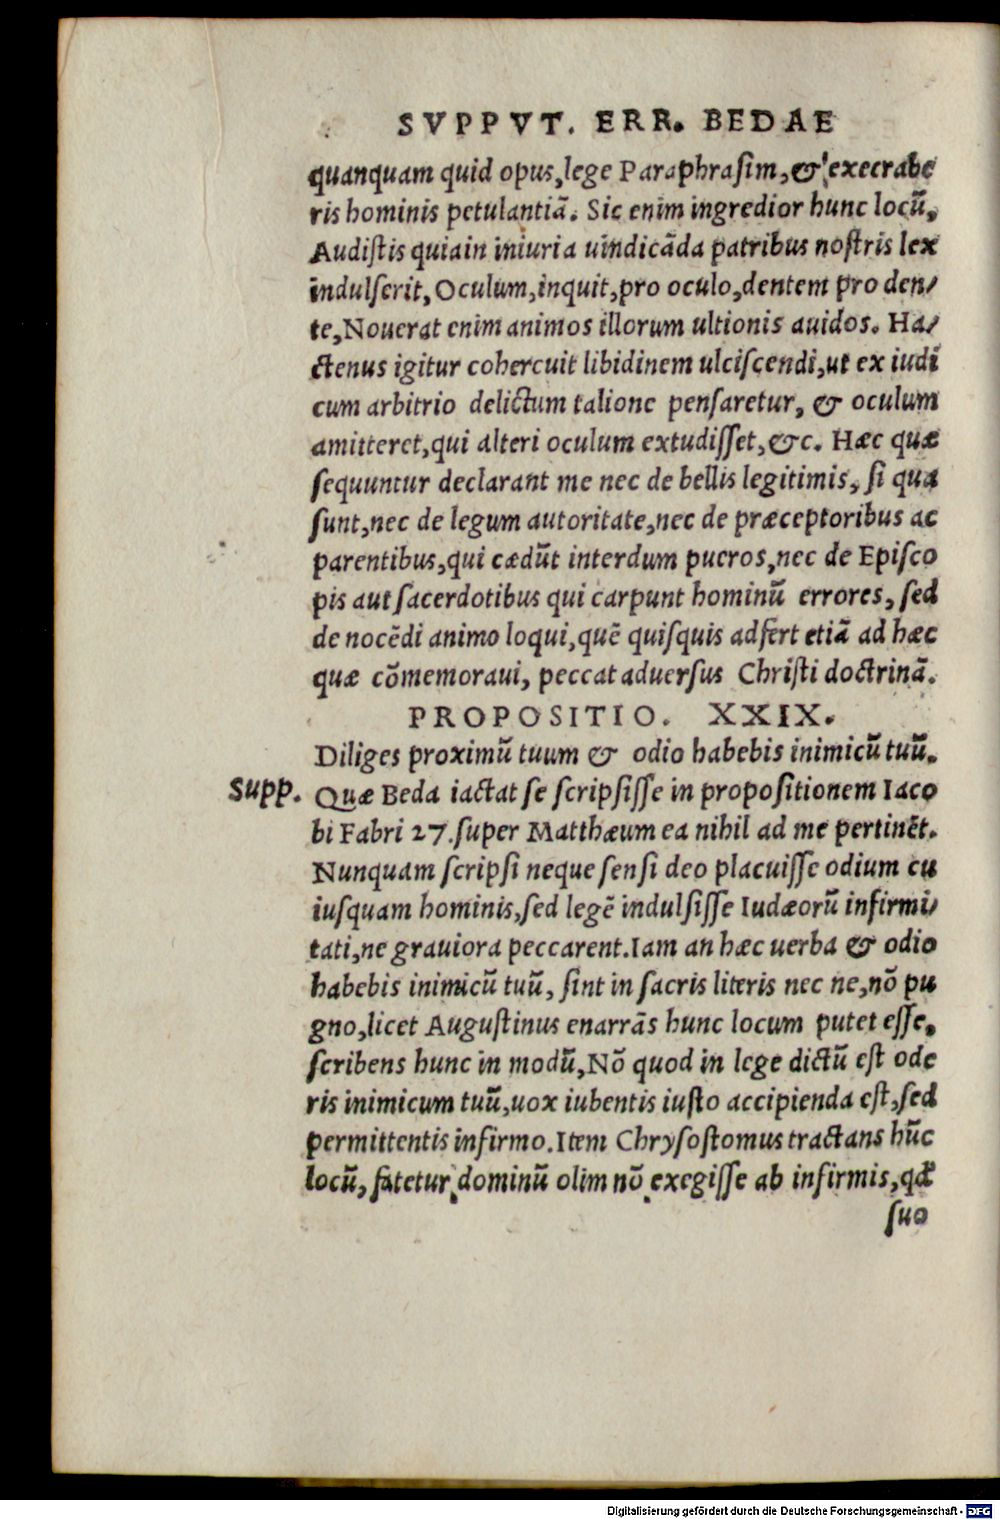 SVPPVT. ERR. BEDAE
quanquam quid opus, lege Paraphrasim, & execrabe
ris hominis petulantiā. Sic enim ingredior hunc locū.
Audistis quia in iniuria uindicāda patribus nostris lex
indulserit, Oculum, inquit, pro oculo, dentem pro den/
te, Nouerat enim animos illorum ultionis auidos. Ha/
ctenus igitur cohercuit libidinem ulciscendi, ut ex iudi
cum arbitrio delictum talione pensaretur, & oculum
amitteret, qui alteri oculum extudisset, &c. Hæc quæ
sequuntur declarant me nec de bellis legitimis, si qua
sunt, nec de legum autoritate, nec de præceptoribus ac
parentibus, qui cædūt interdum pueros, nec de Episco
pis aut sacerdotibus qui carpunt hominū errores, sed
de nocēdi animo loqui, quē quisquis adfert etiā ad hæc
quæ cōmemoraui, peccat aduersus Christi doctrinā.
PROPOSITIO. XXIX.
Diliges proximū tuum & odio habebis inimicū tuū.
Supp. Quæ Beda iactat se scripsisse in propositionem Iaco
bi Fabri 27. super Matthæum ea nihil ad me pertinēt.
Nunquam scripsi neque sensi deo placuisse odium cu
iusquam hominis, sed legē indulsisse Iudæorū infirmi/
tati, ne grauiora peccarent. Iam an hæc uerba & odio
habebis inimicū tuū, sint in sacris literis nec ne, nō pu
gno, licet Augustinus enarrās hunc locum putet esse.
scribens hunc in modū, Nō quod in lege dictū est ode
ris inimicum tuū, uox iubentis iusto accipienda est, sed
permittentis infirmo. Item Chrysostomus tractans hūc
locū, fatetur dominū olim nō exegisse ab infirmis, qđ
suo
Digitalisierung gefördert durch die Deutsche Forschungsgemeinschaft - DFG